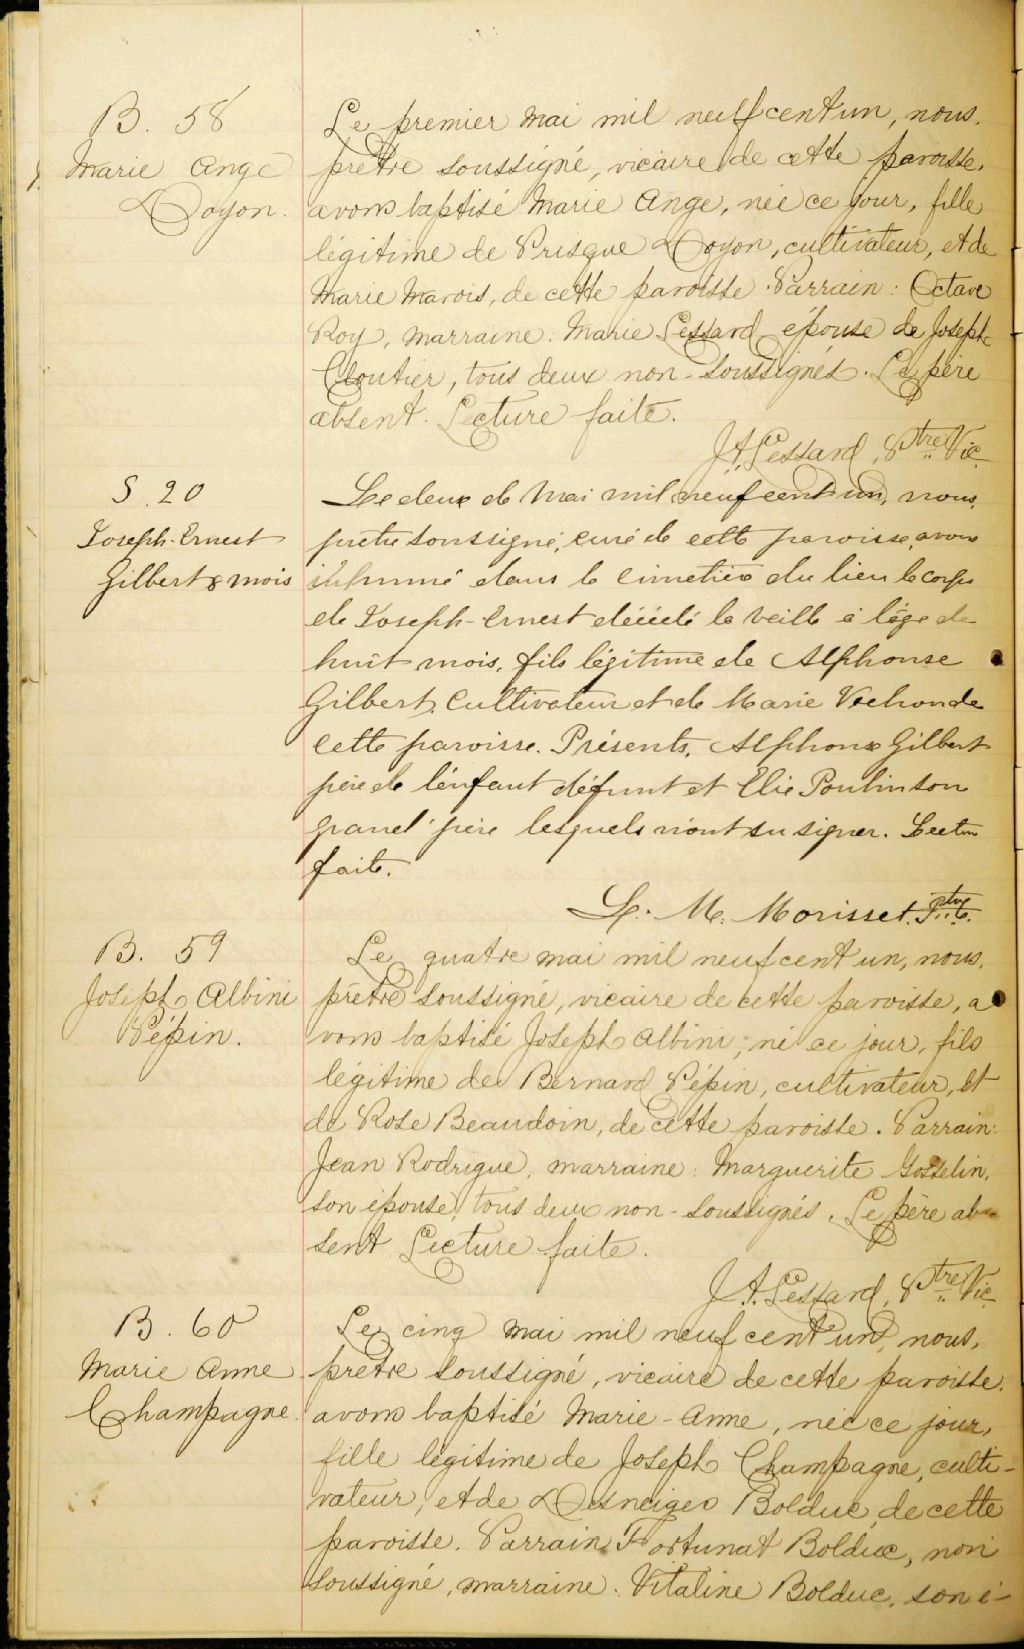 B. 58
Marie Ange
Doyon.
Le premier mai mil neuf cent un, nous,
prêtre soussigné, vicaire de cette paroisse,
avons baptisé Marie Ange, née ce jour, fille
légitime de Prisque Doyon, cultivateur, et de
Marie Marois, de cette paroisse. Parrain: Octave
Roy, marraine: Marie Lessard épouse de Joseph
Cloutier, tous deux non-soussignés. Le père
absent. Lecture faite.
J. A. Lessard, Ptre Vic.
S. 20
Joseph-Ernest
Gilbert 8 mois
Le deux de Mai mil neuf cent un, nous,
prêtre soussigné, curé de cette paroisse, avons
inhumé dans le cimetière du lieu le corps
de Joseph-Ernest décédé la veille à l'âge de
huit mois, fils légitime de Alphonse
Gilbert, Cultivateur et de Marie Vachon de
cette paroisse. Présents, Alphonse Gilbert
père de l'enfant défunt et Elie Poulin son
grand'père lesquels n'ont su signer. Lecture
faite.
L. M. Morisset. Ptre.
B. 59
Joseph Albini
Pépin.
Le quatre mai mil neuf cent un, nous,
prêtre soussigné, vicaire de cette paroisse, a
vons baptisé Joseph Albini, né ce jour, fils
légitime de Bernard Pépin, cultivateur, et
de Rose Beaudoin, de cette paroisse. Parrain:
Jean Rodrigue, marraine: Marguerite Gosselin,
son épouse, tous deux non-soussignés. Le père ab-
sent. Lecture faite.
J. A. Lessard, Ptre Vic.
B. 60
Marie Anne
Champagne.
Le cinq mai mil neuf cent un, nous,
prêtre soussigné, vicaire de cette paroisse,
avons baptisé Marie-Anne, née ce jour,
fille légitime de Joseph Champagne, culti-
vateur, et de Desneiges Bolduc, de cette
paroisse. Parrain Fortunat Bolduc, non
soussigné, marraine. Vitaline Bolduc, son é-